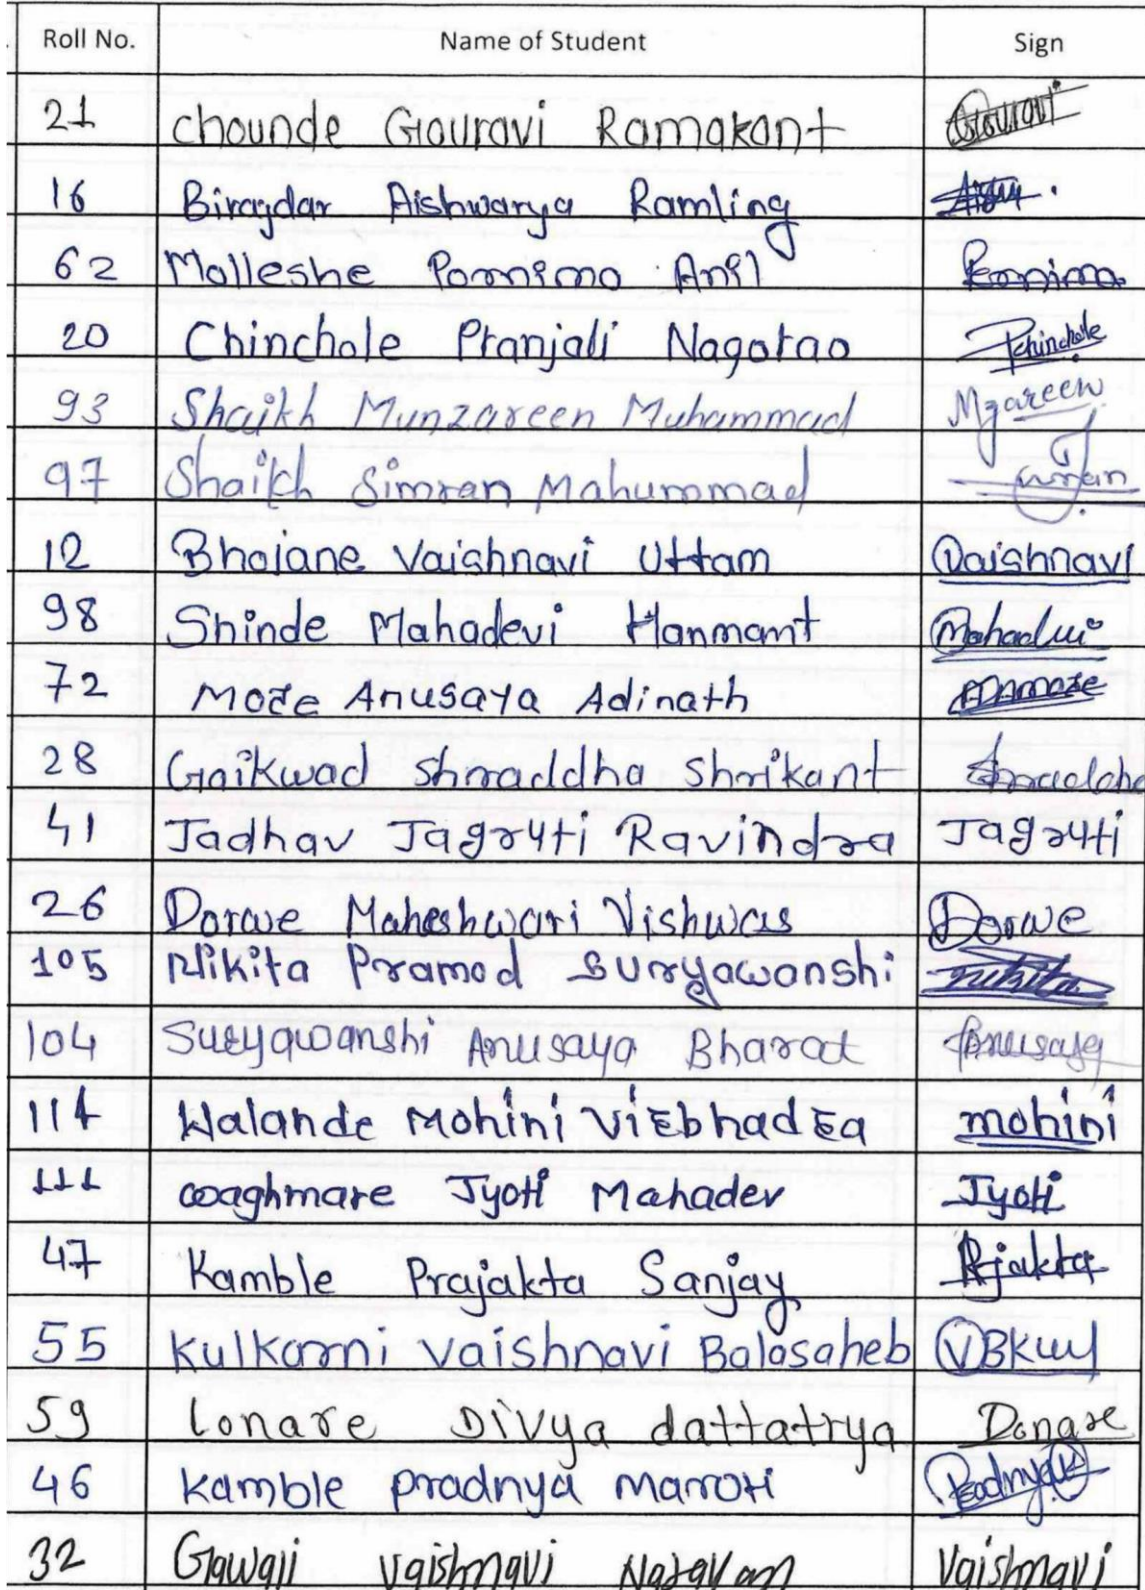 Roll No. Name of Student Sign
21 chounde Gouravi Ramakant Gouravi
16 Biragdar Aishwarya Ramling
62 Molleshe Pornima Anil Pornima
20 Chinchole Pranjali Nagorao Pchinchole
93 Shaikh Munzareen Muhammad Mzareen
97 Shaikh Simran Mahummad
12 Bhojane Vaishnavi Uttam Vaishnavi
98 Shinde Mahadevi Hanmant Mahadevi
72 More Anusaya Adinath
28 Gaikwad shraddha shrikant Shraddha
41 Jadhav Jagruti Ravindra Jagruti
26 Dorwe Maheshwari Vishwas Dorwe
105 Nikita Pramod Suryawanshi Nikita
104 Suryawanshi Anusaya Bharat Anusaya
114 Walande Mohini Virbhadra mohini
111 waghmare Jyoti Mahadev Jyoti
47 Kamble Prajakta Sanjay Prjakta
55 Kulkarni Vaishnavi Balasaheb VBKul
59 lonare Divya dattatrya Donare
46 Kamble pradnya maroti Pradnya K
32 Gawali vaishnavi Narayan Vaishnavi